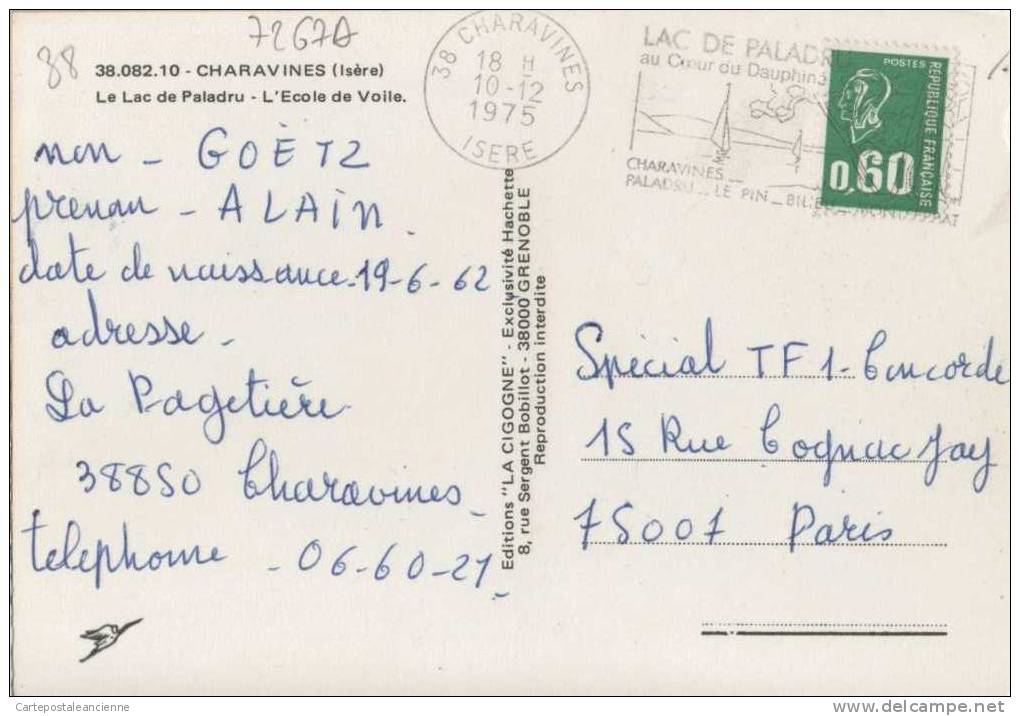 7267A
88
38.082.10 - CHARAVINES (Isère)
Le Lac de Paladru - L'Ecole de Voile.
38 CHARAVINES
18 H
10-12
1975
ISERE
LAC DE PALADR
au Cœur du Dauphiné
CHARAVINES _
PALADRU _ LE PIN _ BIL
POSTES
REPUBLIQUE FRANÇAISE
0,60
nom - GOËTZ
prenom - ALAIN.
date de naissance-19-6-62
adresse -
La Pagetière
38850 Charavines -
telephone - 06-60-21
Editions "LA CIGOGNE" - Exclusivité Hachette
8, rue Sergent Bobillot - 38000 GRENOBLE
Reproduction interdite
Spécial TF1-Concorde
15 Rue Cognac Jay
75007 Paris
Cartepostaleancienne